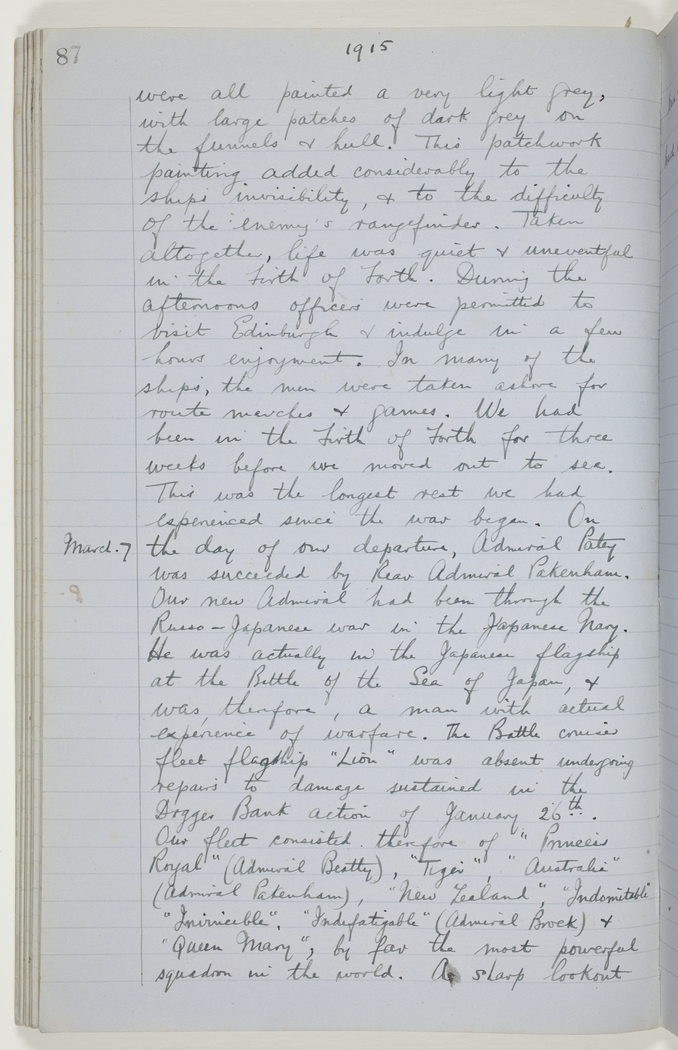 87
1915
were all painted a very light grey,
with large patches of dark grey on
the funnels & hull. This patchwork
painting added considerably to the
ships invisibility, & to the difficulty
of the enemy's rangefinder. Taken
altogether, life was quiet & uneventful
in the Firth of Forth. During the
afternoons officers were permitted to
visit Edinburgh & indulge in a few
hours enjoyment. In many of the
ships, the men were taken ashore for
route marches & games. We had
been in the Firth of Forth for three
weeks before we moved out to sea.
This was the longest rest we had
experienced since the war began. On
March. 7 the day of our departure, Admiral Patey
was succeeded by Rear Admiral Pakenham.
Our new Admiral had been through the
Russo-Japanese war in the Japanese Navy.
He was actually in the Japanese flagship
at the Battle of the Sea of Japan, &
was, therefore, a man with actual
experience of warfare. The Battle cruiser
fleet flagship "Lion" was absent undergoing
repairs to damage sustained in the
Dogger Bank action of January 26th.
Our fleet consisted therefore of "Princess
Royal" (Admiral Beatty), "Tiger", "Australia"
(Admiral Pakenham), "New Zealand", "Indomitable"
"Invincible", "Indefatigable" (Admiral Brock) &
"Queen Mary", by far the most powerful
squadron in the world. A sharp lookout